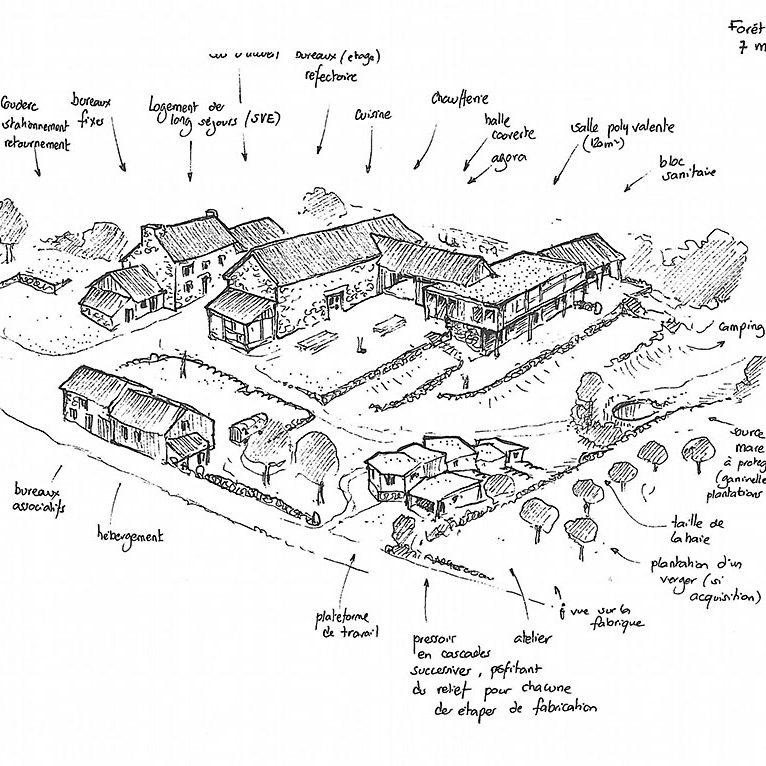 Forêt
7 m
bureaux (étage)
réfectoire
Couderc
stationnement
retournement
bureaux
fixes
Logement de
long séjours (SVE)
cuisine
chaufferie
halle
couverte
agora
salle polyvalente
(120m²)
bloc
sanitaire
camping
source
mare
à proteg
(gaminelle
plantations
taille de
la haie
plantation d'un
verger (si
acquisition)
vue sur la
fabrique
bureaux
associatifs
hébergement
plateforme
de travail
pressoir
en cascades
successives, pofitant
du relief pour chacune
des étapes de fabrication
atelier